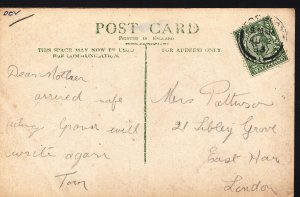 DEV
POST CARD
PRINTED IN ENGLAND
THIS SPACE MAY NOW BE USED
FOR COMMUNICATION.
FOR ADDRESS ONLY.
Dear Mother
arrived safe
feeling Grand will
write again
Tom
Mrs Pattinson
21 Sibley Grove
East Ham
London